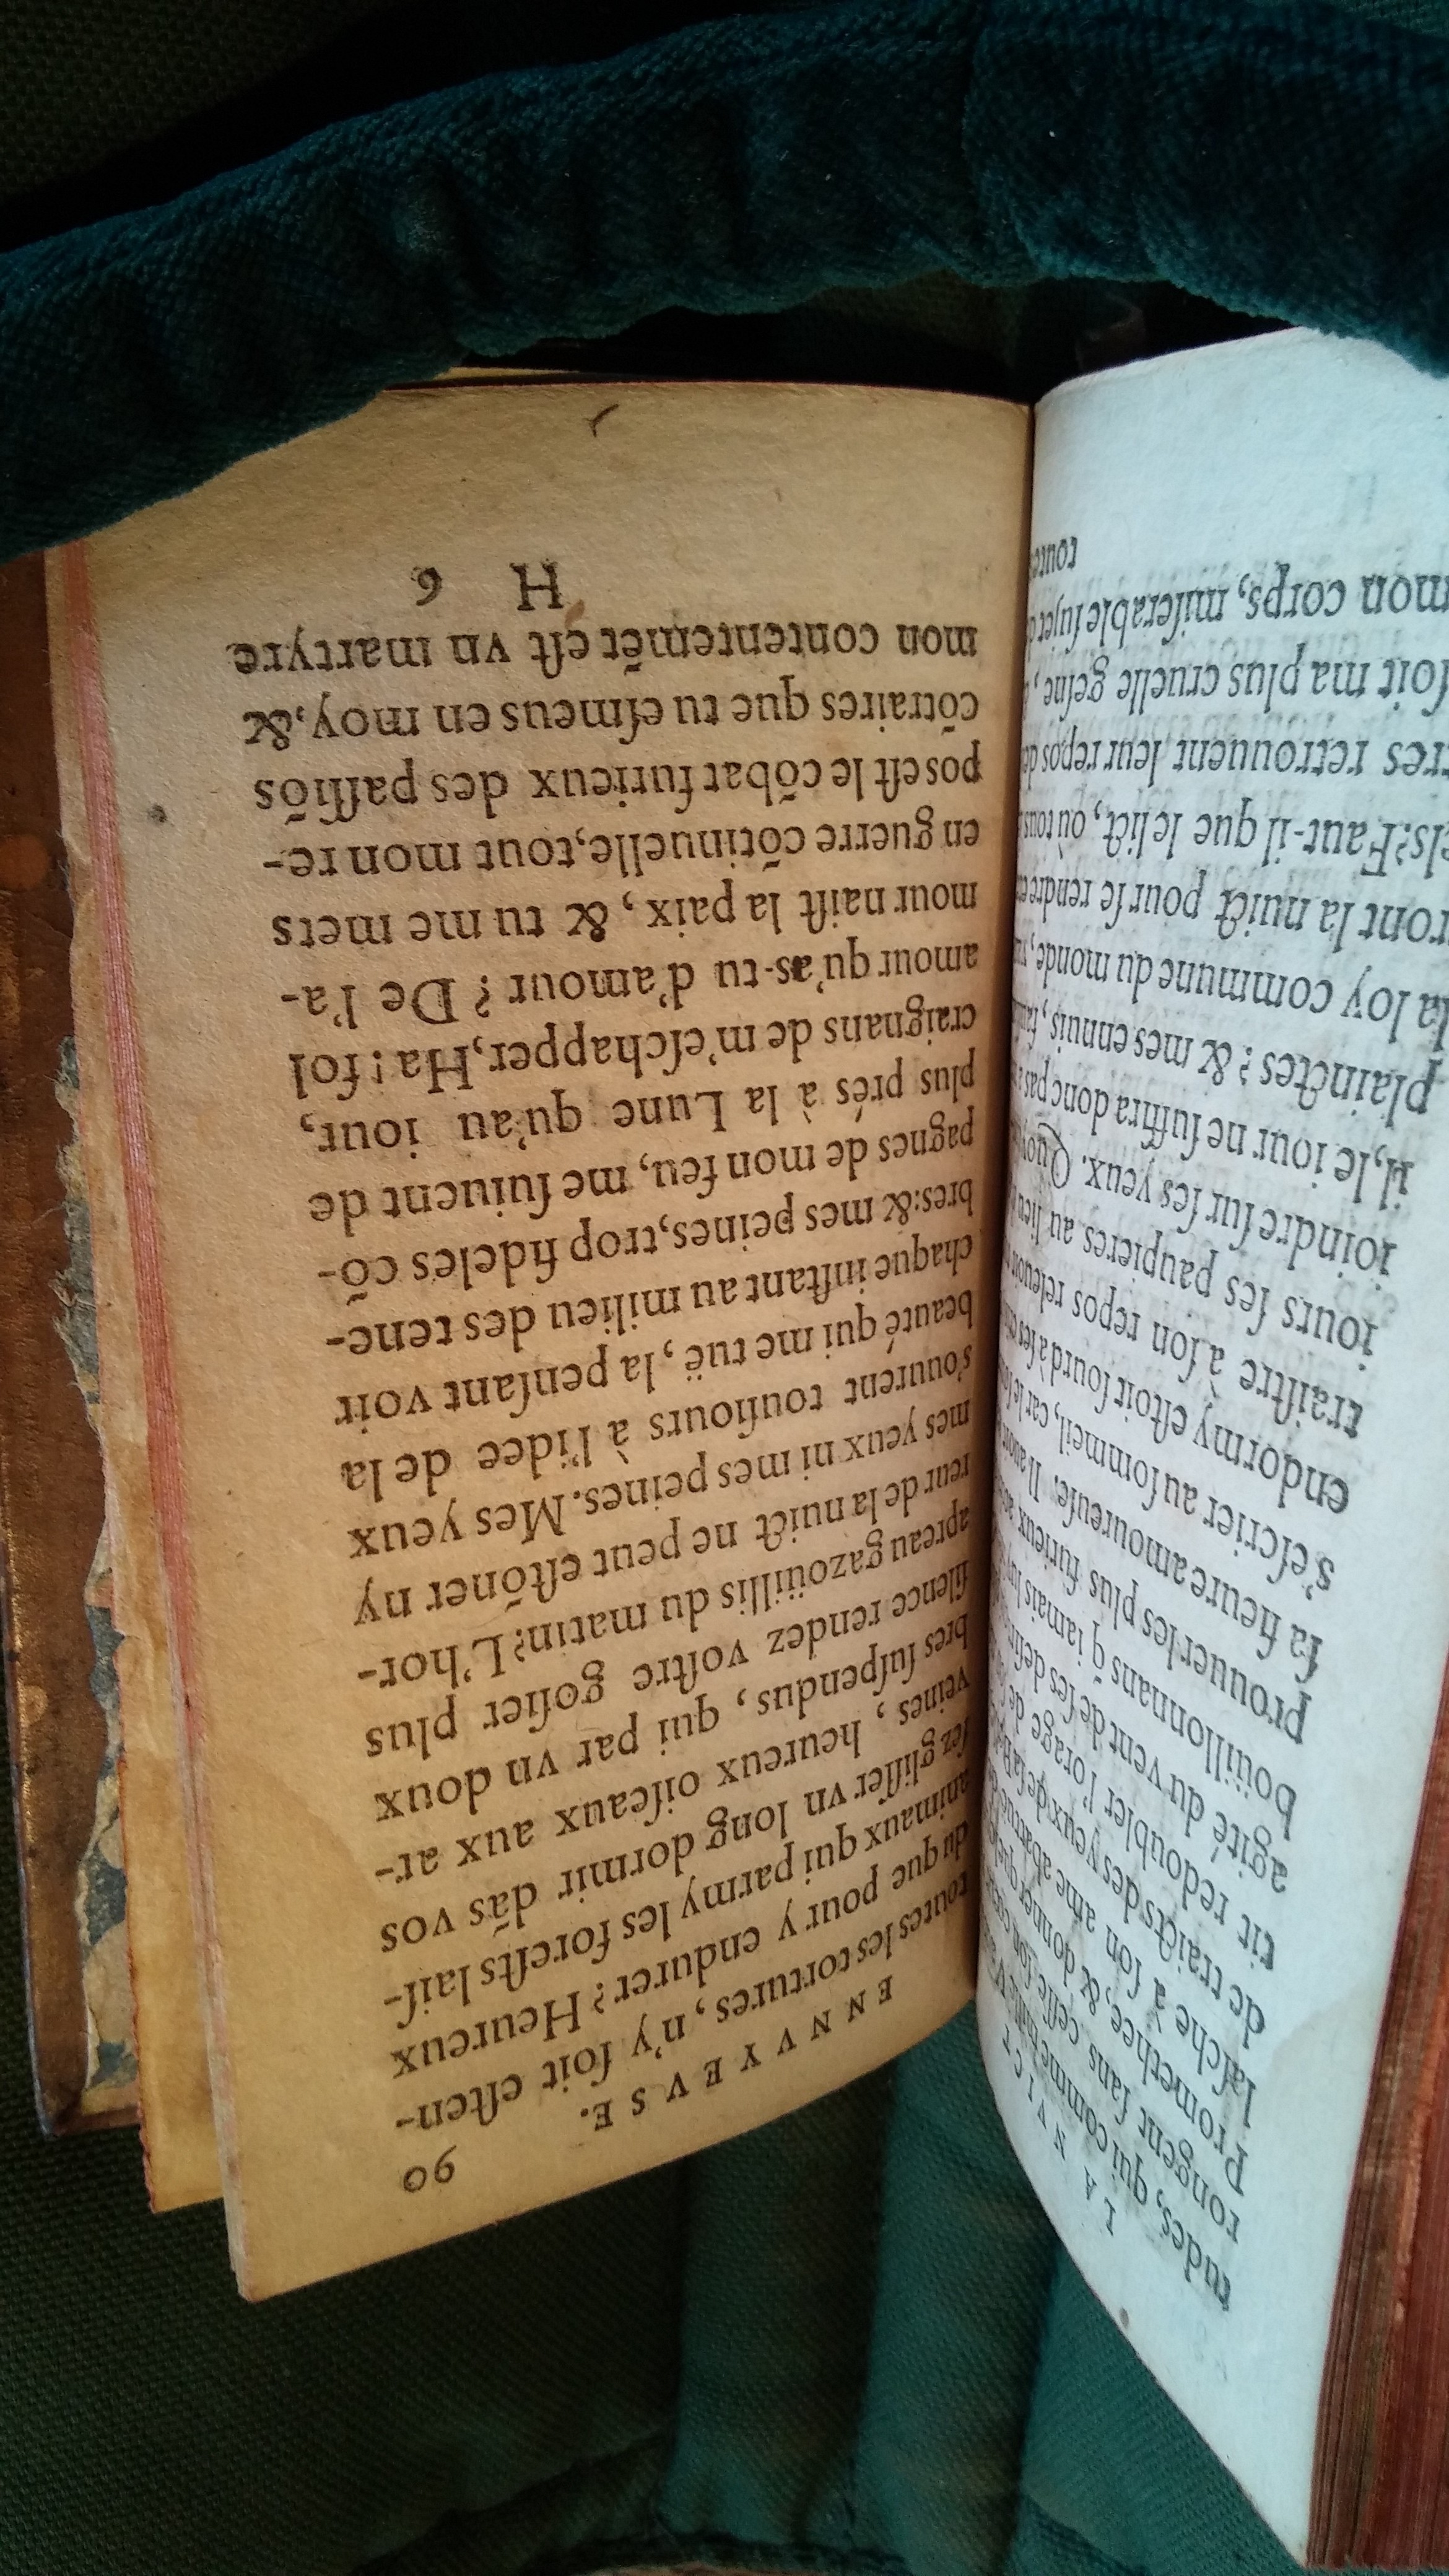 LA NVICT
tudes, qui comme mille
rongent ſans ceſſe ſon
Promethee, & donner
laſche à ſon ame abatue
de traicts des yeux de ſa
tit redoubler l'orage de
agité du vent de ſes deſirs
boüillonnans q̃ iamais
prouuer les plus furieux
ſa fieure amoureuſe. Il
s'eſcrier au ſommeil, car le
endormy eſtoit ſourd à ſes
traiſtre à ſon repos releuoit
iours ſes paupieres au lieu
ioindre ſur ſes yeux. Quoy
il, le iour ne ſuffira donc pas
plainctes? & mes ennuis,
la loy commune du monde,
ront la nuict pour ſe rendre
els? Faut-il que le lict, où tous
tres retrouuent leur repos
ſoit ma plus cruelle geſne,
mon corps, miſerable ſujet
toutes
ENNVYEVSE. 90
toutes les tortures, n'y ſoit eſten-
du que pour y endurer? Heureux
animaux qui parmy les foreſts laiſ-
ſez gliſſer vn long dormir dãs vos
veines, heureux oiſeaux aux ar-
bres ſuſpendus, qui par vn doux
ſilence rendez voſtre goſier plus
apreau gazoüillis du matin? L'hor-
reur de la nuict ne peut eſtõner ny
mes yeux ni mes peines. Mes yeux
s'ouurent touſiours à l'idee de la
beauté qui me tuë, la penſant voir
chaque inſtant au milieu des tene-
bres: & mes peines, trop fideles cõ-
pagnes de mon feu, me ſuiuent de
plus prés à la Lune qu'au iour,
craignans de m'eſchapper, Ha! fol
amour qu'as-tu d'amour? De l'a-
mour naiſt la paix, & tu me mets
en guerre cõtinuelle, tout mon re-
pos eſt le cõbat furieux des paſſiõs
cõtraires que tu eſmeus en moy, &
mon contentemẽt eſt vn martyre
H 6